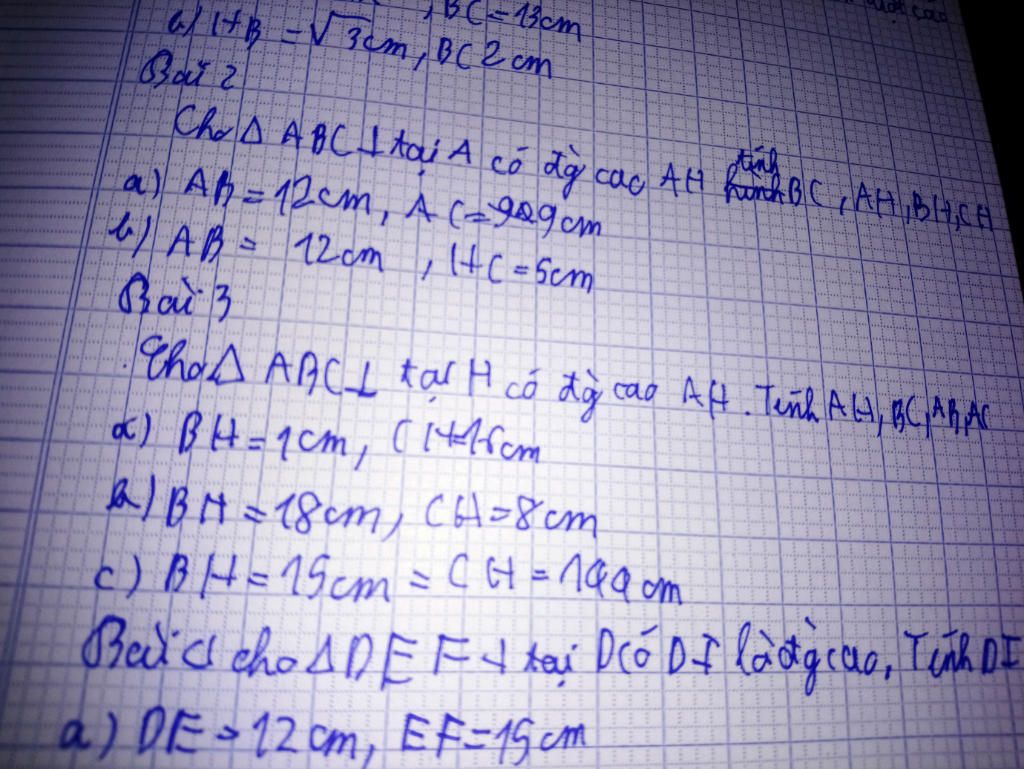 , BC = 13cm
b) HB = √3cm, BC 2cm
Bài 2
Cho Δ ABC ⊥ tại A có đg̀ cao AH tính BC, AH, BH, CH
a) AB = 12cm, AC = 9cm
b) AB = 12cm, HC = 5cm
Bài 3
Cho Δ ABC ⊥ tại H có đg̀ cao AH. Tính AH, BC, AB, AC
a) BH = 1cm, CH = 16cm
b) BH = 18cm, CH = 8cm
c) BH = 15cm = CH = 144cm
Bài 4 cho Δ DEF ⊥ tại D có DI là đg̀ cao, Tính DI
a) DE = 12cm, EF = 15cm